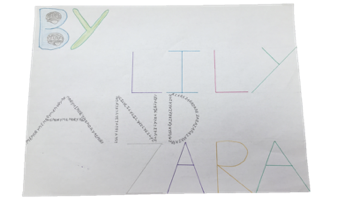 BY
LILY
AND
ZARA